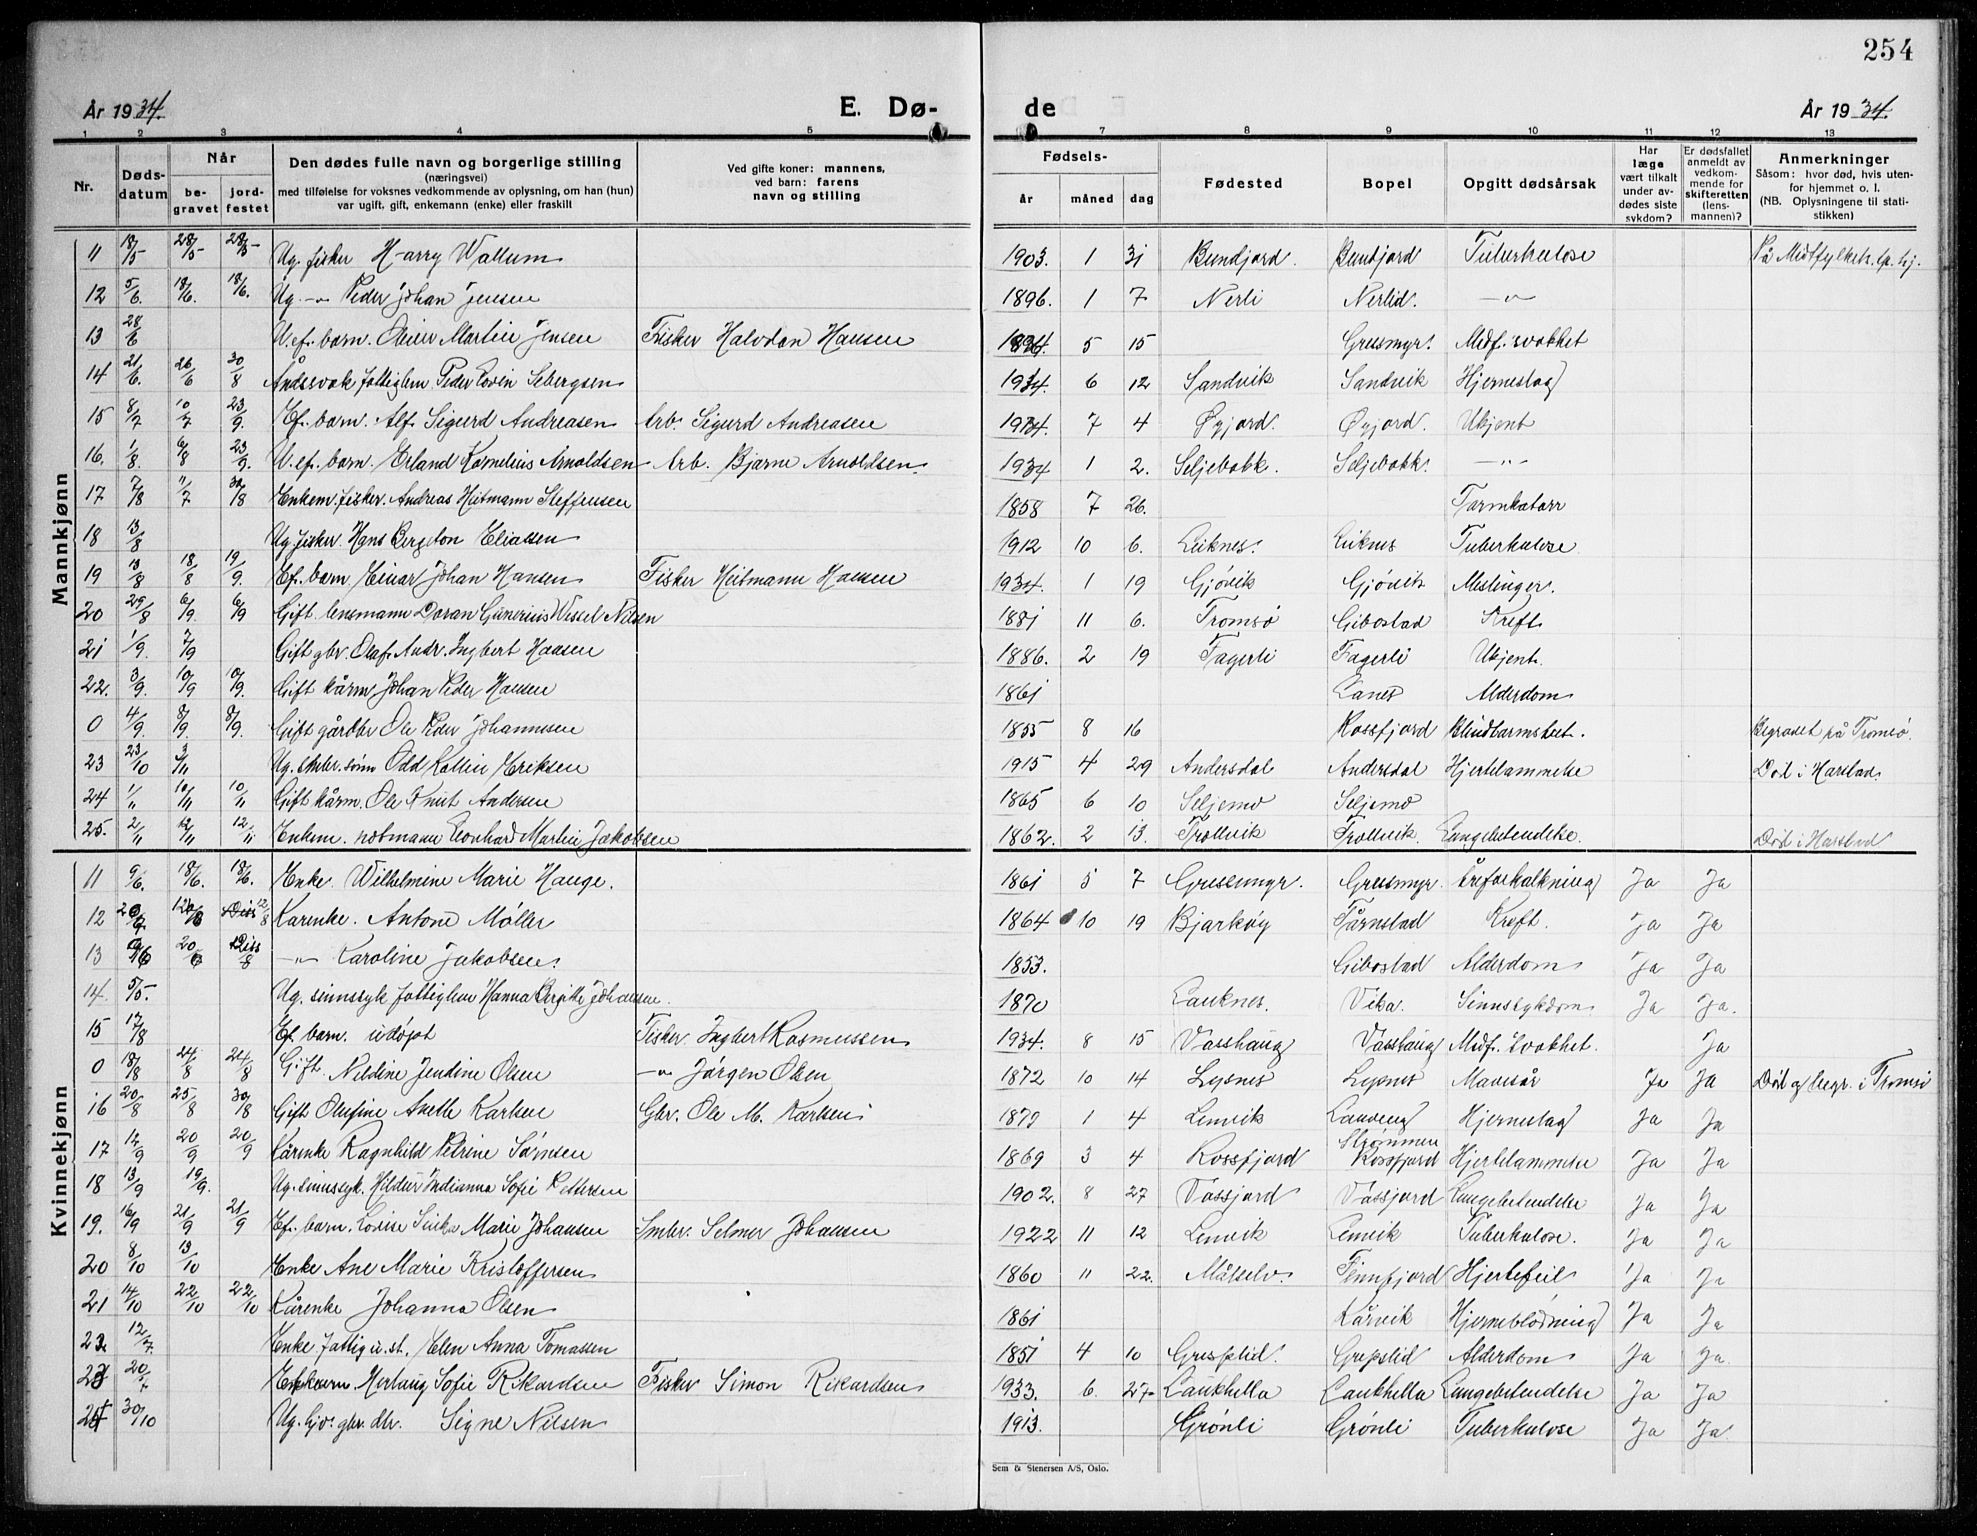 254
År 1934. E. Dø- de År 1934.
1 2 3 4 5 7 8 9 10 11 12 13
Nr. Døds-datum Når be-gravet jord-festet Den dødes fulle navn og borgerlige stilling (næringsvei) med tilføielse for voksnes vedkommende av oplysning, om han (hun) var ugift, gift, enkemann (enke) eller fraskilt Ved gifte koner: mannens, ved barn: farens navn og stilling Fødsels- år måned dag Fødested Bopel Opgitt dødsårsak Har læge vært tilkalt under av-dødes siste sykdom? Er dødsfallet anmeldt av vedkom-mende for skifteretten (lens-mannen)? Anmerkninger Såsom: hvor død, hvis uten-for hjemmet o. l. (NB. Oplysningene til stati-stikken)
Mannkjønn
11 18/5 28/5 28/5 Ug. fisker Harry Wallum 1903. 1 31 Bundjord. Bundjord Tuberkulose På Midtfylkets sp. hj.
12 5/6. 18/6. 18/6. Ug. -"- Peder Johan Jensen 1896. 1 7 Nerli Nerlid. -"-
13 28/6 U.ef. barn. Oliver Martin Jensen Fisker Halvdan Hansen 1934. 5 15 Gressmyr. Medf. svakhet
14 21/6. 26/6 30/8 Åndssvak fattiglem Peder Sebergsen 1934. 6 12 Sandvik Sandvik Hjerneslag
15 8/7 10/7 23/9. Ef. barn. Alf Sigurd Andreasen Arb. Sigurd Andreasen 1934. 7 4 Øyjord. Øyjord. Ukjent
16. 1/8. 6/8 23/9. U.ef. barn. Erland Kornelius Arnoldsen Arb. Bjarne Arnoldsen. 1934 1 2. Seljebakk. Seljebakk. -"-
17 7/8 11/7 30/8 Enkem. fisker. Andreas Heitmann Steffensen 1858 7 26. Tarmkatarr
18 13/8 Ug. fisker. Hans Bergeton Eliassen 1912 10 6. Leiknes. Leiknes Tuberkulose
19 13/8 18/8 19/9. Ef. barn Einar Johan Hansen Fisker Heitmann Hansen 1934. 1 19 Gjövik Gjövik Meslinger.
20 29/8 6/9. 6/9 Gift lensmann Doran Gunerius Wessel Nilsen 1881 11 6. Tromsö Gibostad Kreft
21 1/9. 7/9 Gift gbr. Olaf Andr. Ingbert Hansen 1886. 2 19 Fagerli Fagerli Ukjent.
22. 3/9. 10/9 10/9. Gift kårm. Johan Peder Hansen 1861 Lanes Alderdom
0 4/9. 8/9 8/9. Gift gårdbr. Ole Peder Johannesen 1855 8 16 Rossfjord Blindtarmsbet. Begravet på Tromsö.
23 23/10 3/11 Ug. småbr. sönn Odd Kollin Eriksen 1915 4 29 Andersdal Andersdal Hjertelammelse Död i Harstad
24 1/11 10/11 10/11 Gift kårm. Ole Knut Andersen 1865 6 10 Seljemo Seljemo
25. 2/11 12/11 12/11 Enkem. notmann Leonhard Martin Jakobsen 1862. 2 13. Trollvik Trollvik Lungebetendelse. Död i Harstad
Kvinnekjønn
11 9/6. 18/6. 18/6. Enke Wilhelmine Marie Hauge. 1861 5 7 Gressmyr. Gressmyr. Åreforkalkning Ja Ja
12 12/8 Kårenke. Antone Möller 1864 10 19 Bjarköy Tårnstad Kreft. Ja Ja
13 20/6 -"- Karoline Jakobsen. 1853. Gibostad Alderdom Ja Ja
14. 5/5. Ug. sinnssyk fattiglem Hanna Birgitte Johansen. 1870 Lauknes. Vika. Sinnssykdom Ja Ja.
15 17/8 Ef. barn. udöpt Fisker Ingbert Rasmussen 1934. 8 15 Vasshaug Vasshaug Medf. svakhet. Ja
0 18/8 24/8 24/8 Gift. Neldine Jendine Olsen -"- Jörgen Olsen 1872 10 14 Lysnes Lysnes Mavesår Ja Ja Död og begr. i Tromsö
16 20/8 25/8 30/8 Gift Olufine Anette Karlsen Gbr. Ole M. Karlsen 1879 1 4 Lenvik Laukeng Hjerneslag Ja Ja
17 12/9 20/9 20/9 Kårenke Ragnhild Petrine Sörnsen 1869 3 4 Rossfjord Strömmen Rossfjord Hjertelammelse Ja Ja
18 13/9 19/9. Ug. sinnssyk. Hildur Indianna Sofie Pettersen 1902. 8 27 Vassjord Vassjord Lungebetendelse Ja Ja
19. 16/9 21/9 21/9 Ef. barn. Lovise Marie Johansen Småbr. Selmer Johansen 1922 11 12 Lenvik Lenvik Tuberkulose. Ja Ja
20 8/10 13/10 Enke Ane Marie Kristoffersen 1860 11 22. Målselv. Finnfjord Hjertefeil Ja Ja
21 14/10 22/10 22/10 Kårenke Johanna Olsen 1861 Kårvik Hjerneblödning Ja Ja
22. 12/7. Enke fattigu.st. Elen Anna Tomassen 1851 4 10 Grepslid. Grepslid Alderdom Ja Ja.
23 20/7 Ef. barn Herlaug Sofie Rikardsen Fisker Simon Rikardsen 1933. 6. 27 Laukhella Laukhella Lungebetendelse Ja Ja
24 30/10 Ug. hjv. gbr. dtr. Signe Nilsen 1913. Grönli Grönli Tuberkulose Ja Ja
Sem & Stenersen A/S, Oslo.